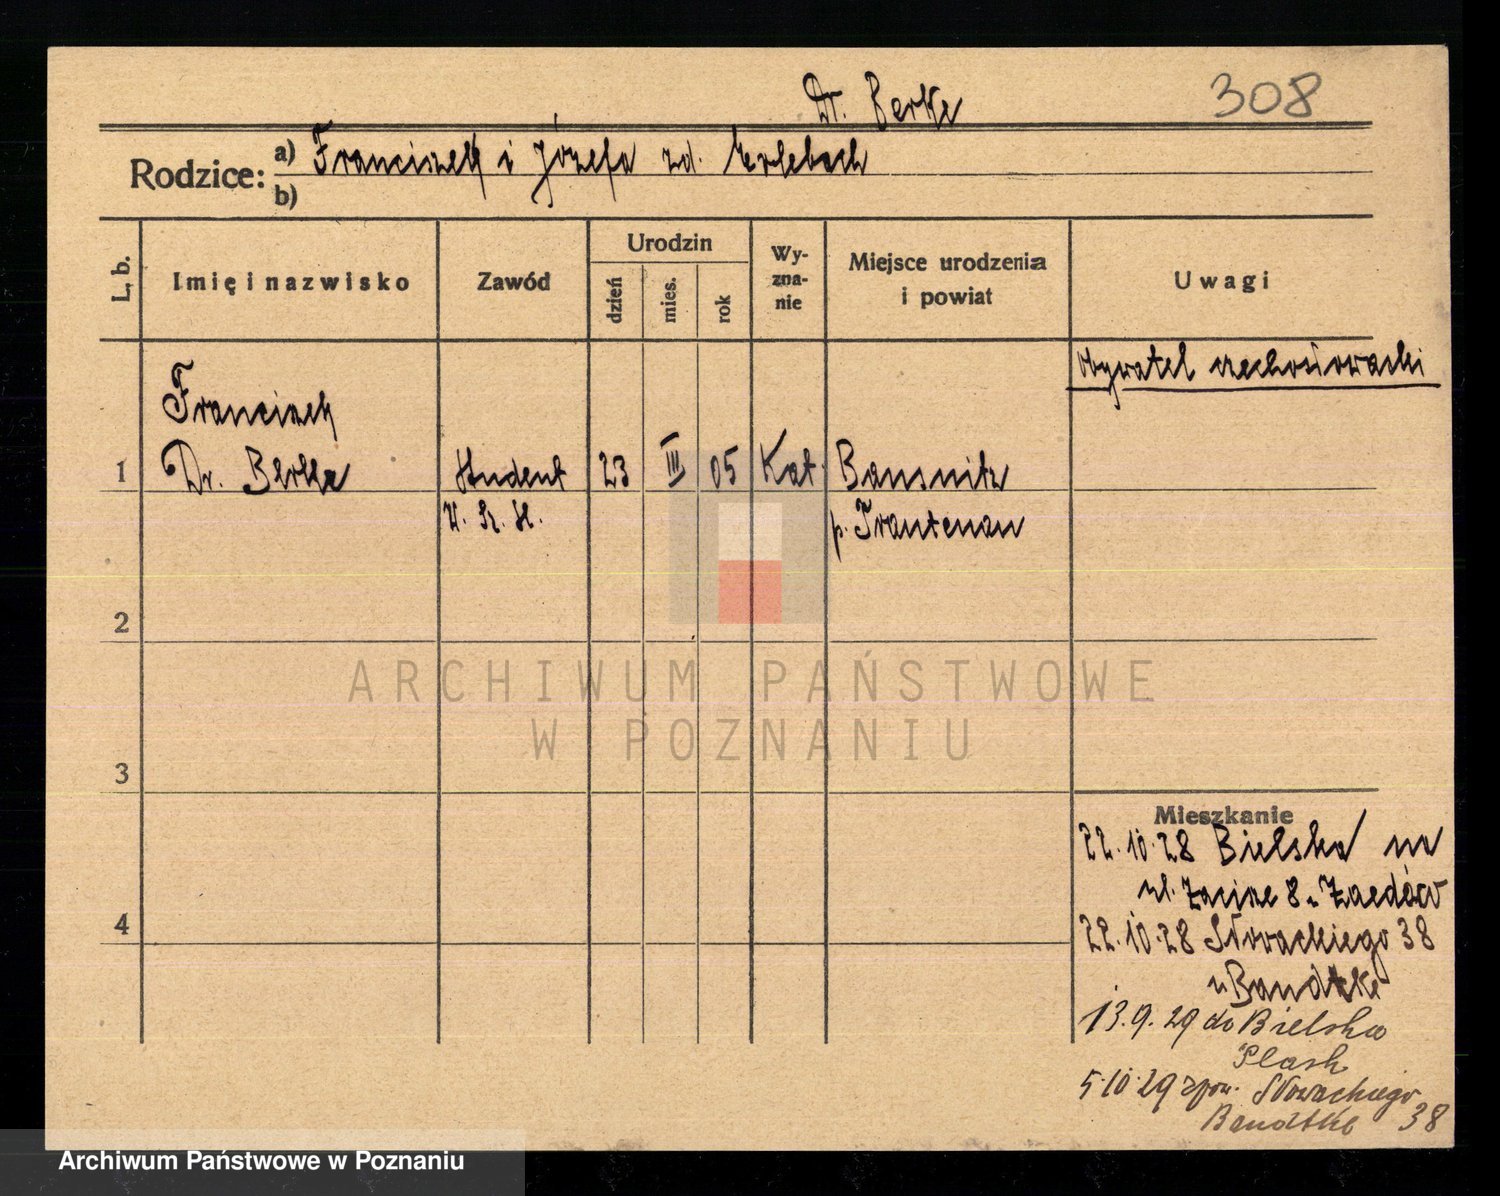 Dr. Berke 308
Rodzice: a) Franciszek i Józefa zd. Erlebach
b)
L. b. Imię i nazwisko Zawód Urodzin dzień mies. rok Wy-zna-nie Miejsce urodzenia i powiat Uwagi
obywatel czechosłowacki
Franciszek
1 Dr. Berke Student 23 III 05 Kat. Bausnitz
W. S. H. p. Trautenau
2
3
4
Mieszkanie
22.10.28 Bielska na
ul. Zacisze 8 u
22.10.28 Słowackiego 38
u Bandtke
13.9.29 do Bielska
Śląsk
5.10.29 zpow. Słowackiego
Bandtke 38
ARCHIWUM PAŃSTWOWE
W POZNANIU
Archiwum Państwowe w Poznaniu